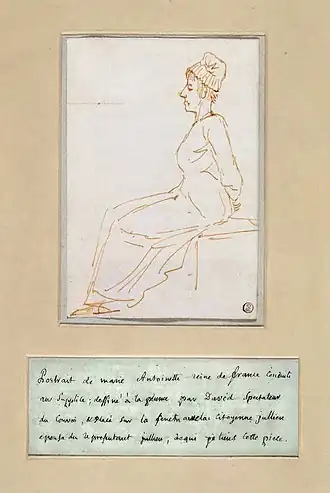 Portrait de marie Antoinette reine de France conduit
au Supplice; dessiné à la plume par David Spectateur
du Convoi, & placé sur la fenetre avec la citoyenne jullien
epouse du representant jullien, de qui je tiens cette piece.